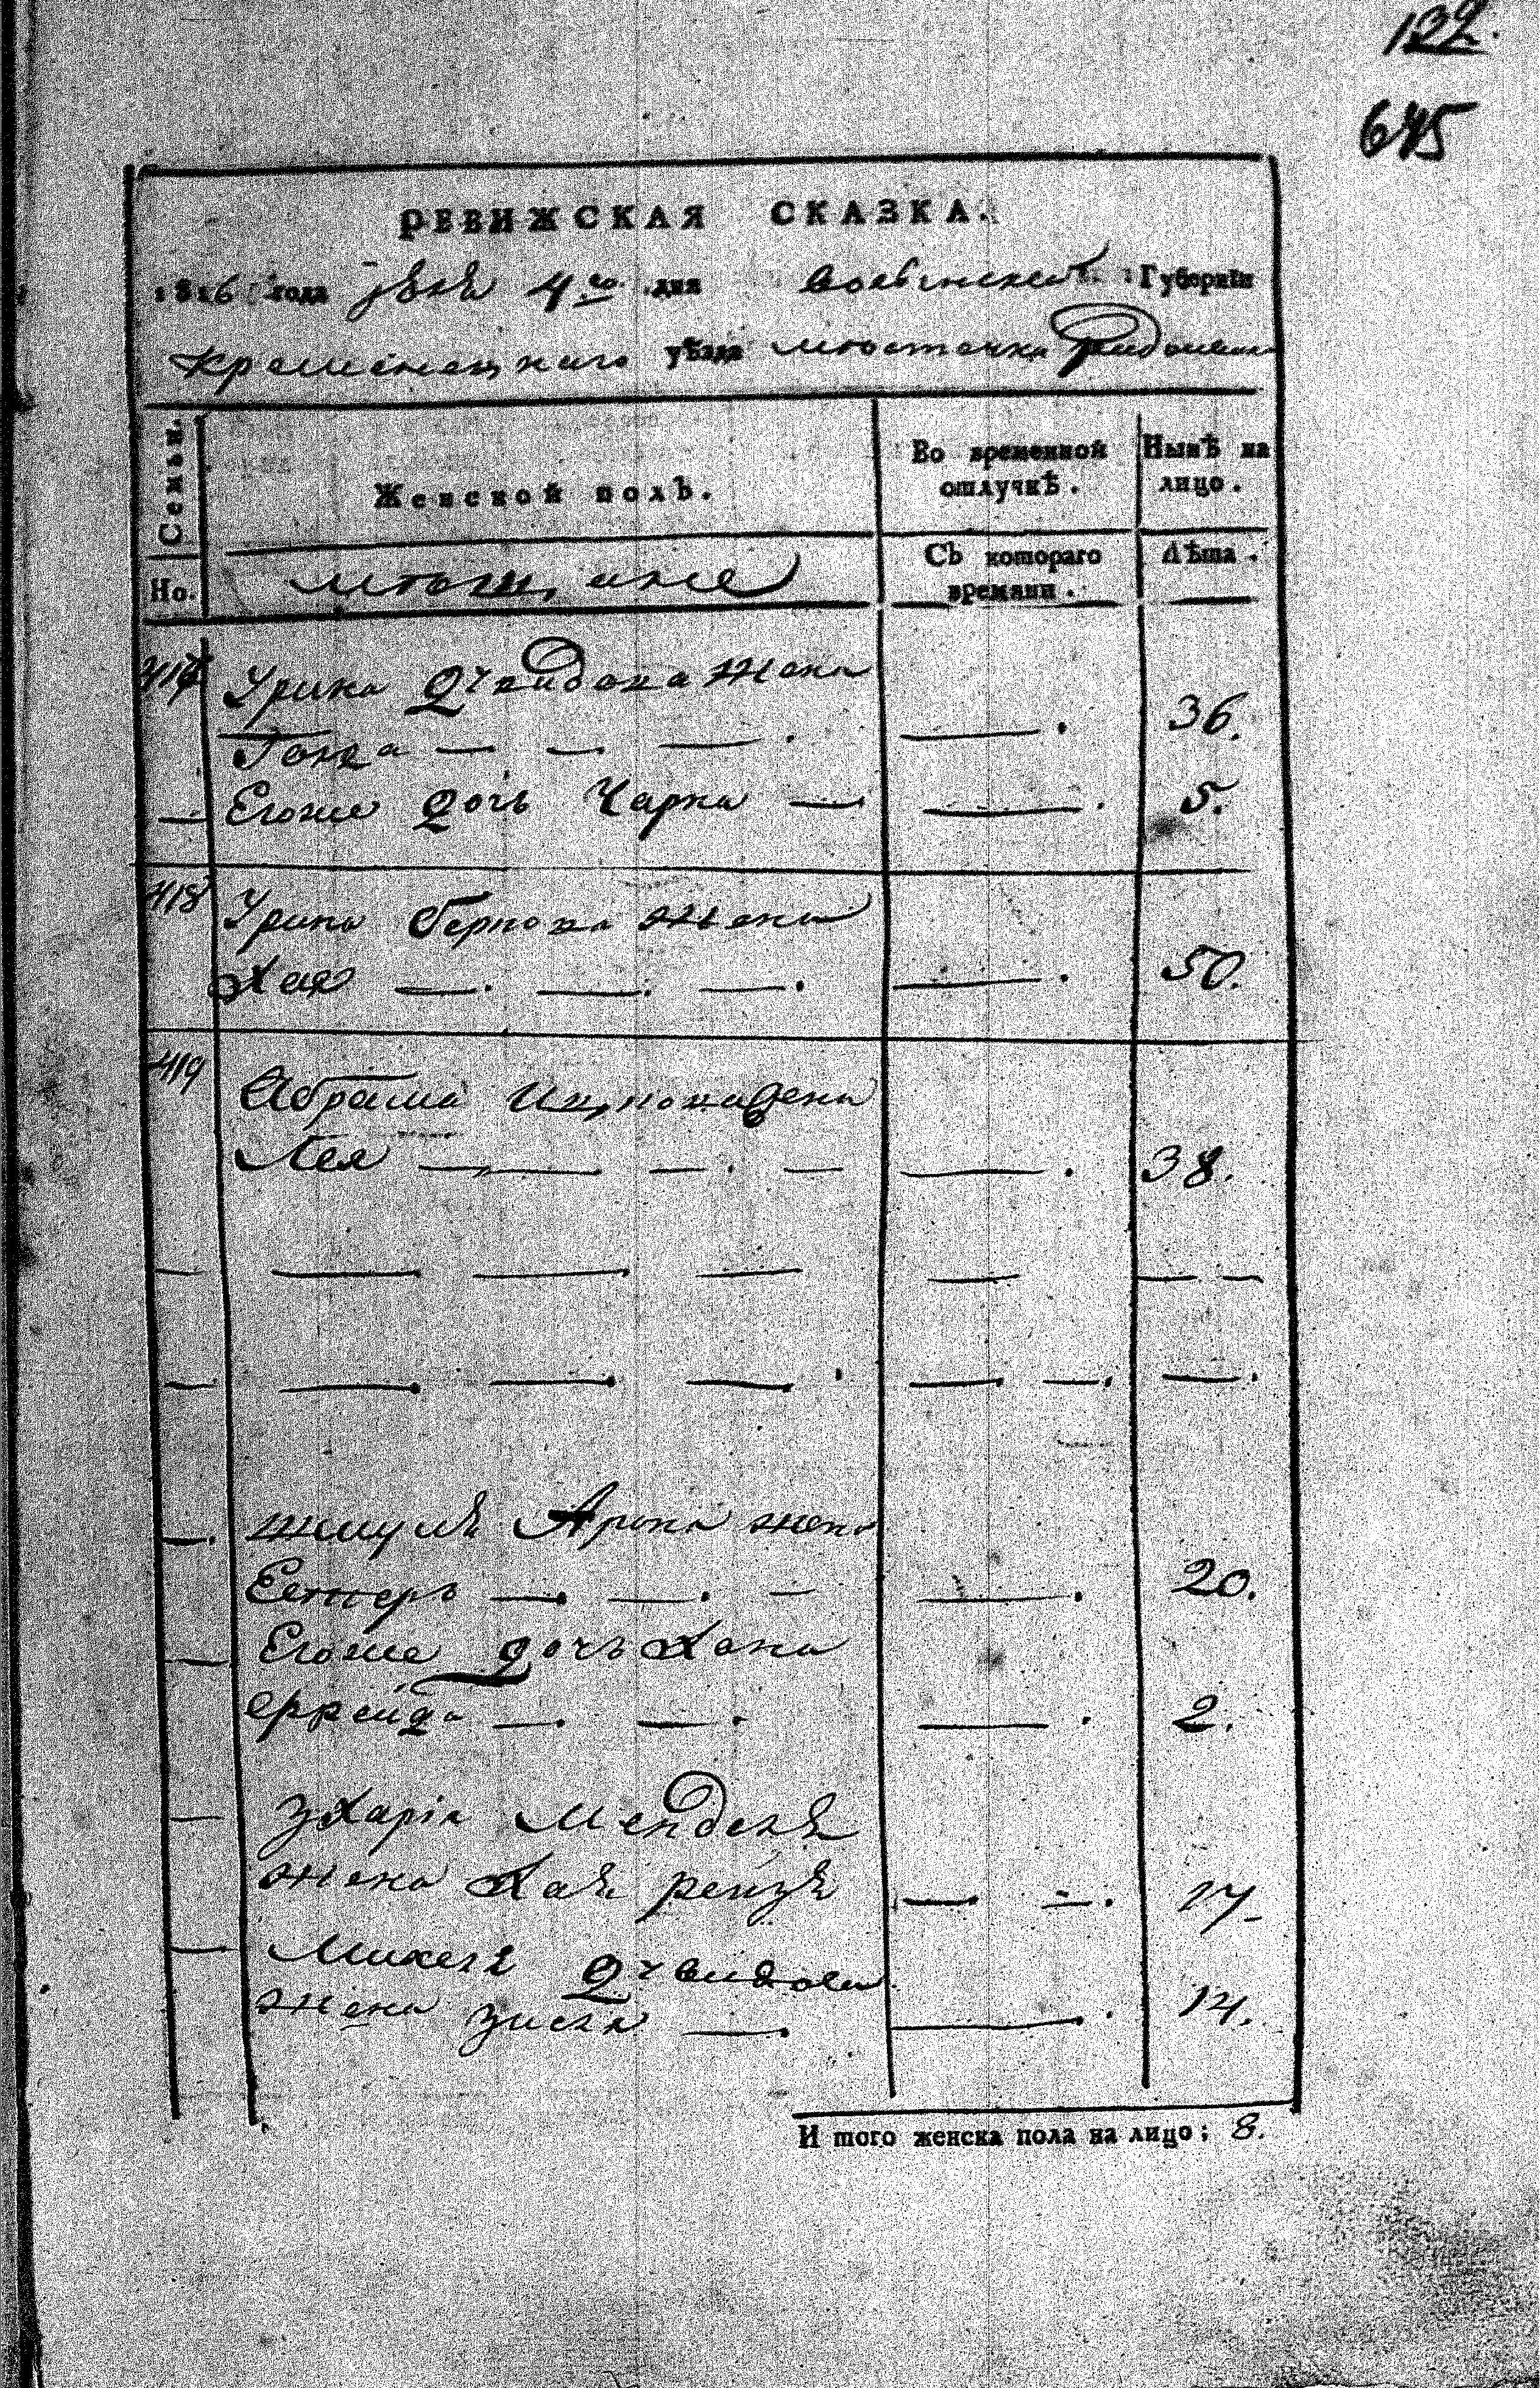 132.
645
РЕВИЖСКАЯ СКАЗКА.
1816 года 4го дня Волынской Губерніи
Кременецкаго уѣзда местечка
Семьи.
Женской полъ.
Во временной отлучкѣ.
Нынѣ на лицо.
Но.
мещане
Съ котораго времяни.
Лѣта.
Урина Давидова жена
— — — . — . 36.
— Егоже дочь Чарна — — . 5.
418 Урина Беркова жена
Хая — . — . — . — . 50.
419 Абрама Ицкова жена
Лея — — — . — — . 38.
— — — — — — —
— — . — . — . — — . — .
— . Шмуля Арона жена
Естеръ — . — . — — . 20.
— Егоже дочь Хана
Фрейда — . — . — . 2.
— Зхарія Менделя
жена Хая — — . 17
— Михеля Давидова
жена Зисля — . — . 14.
И того женска пола на лицо; 8.